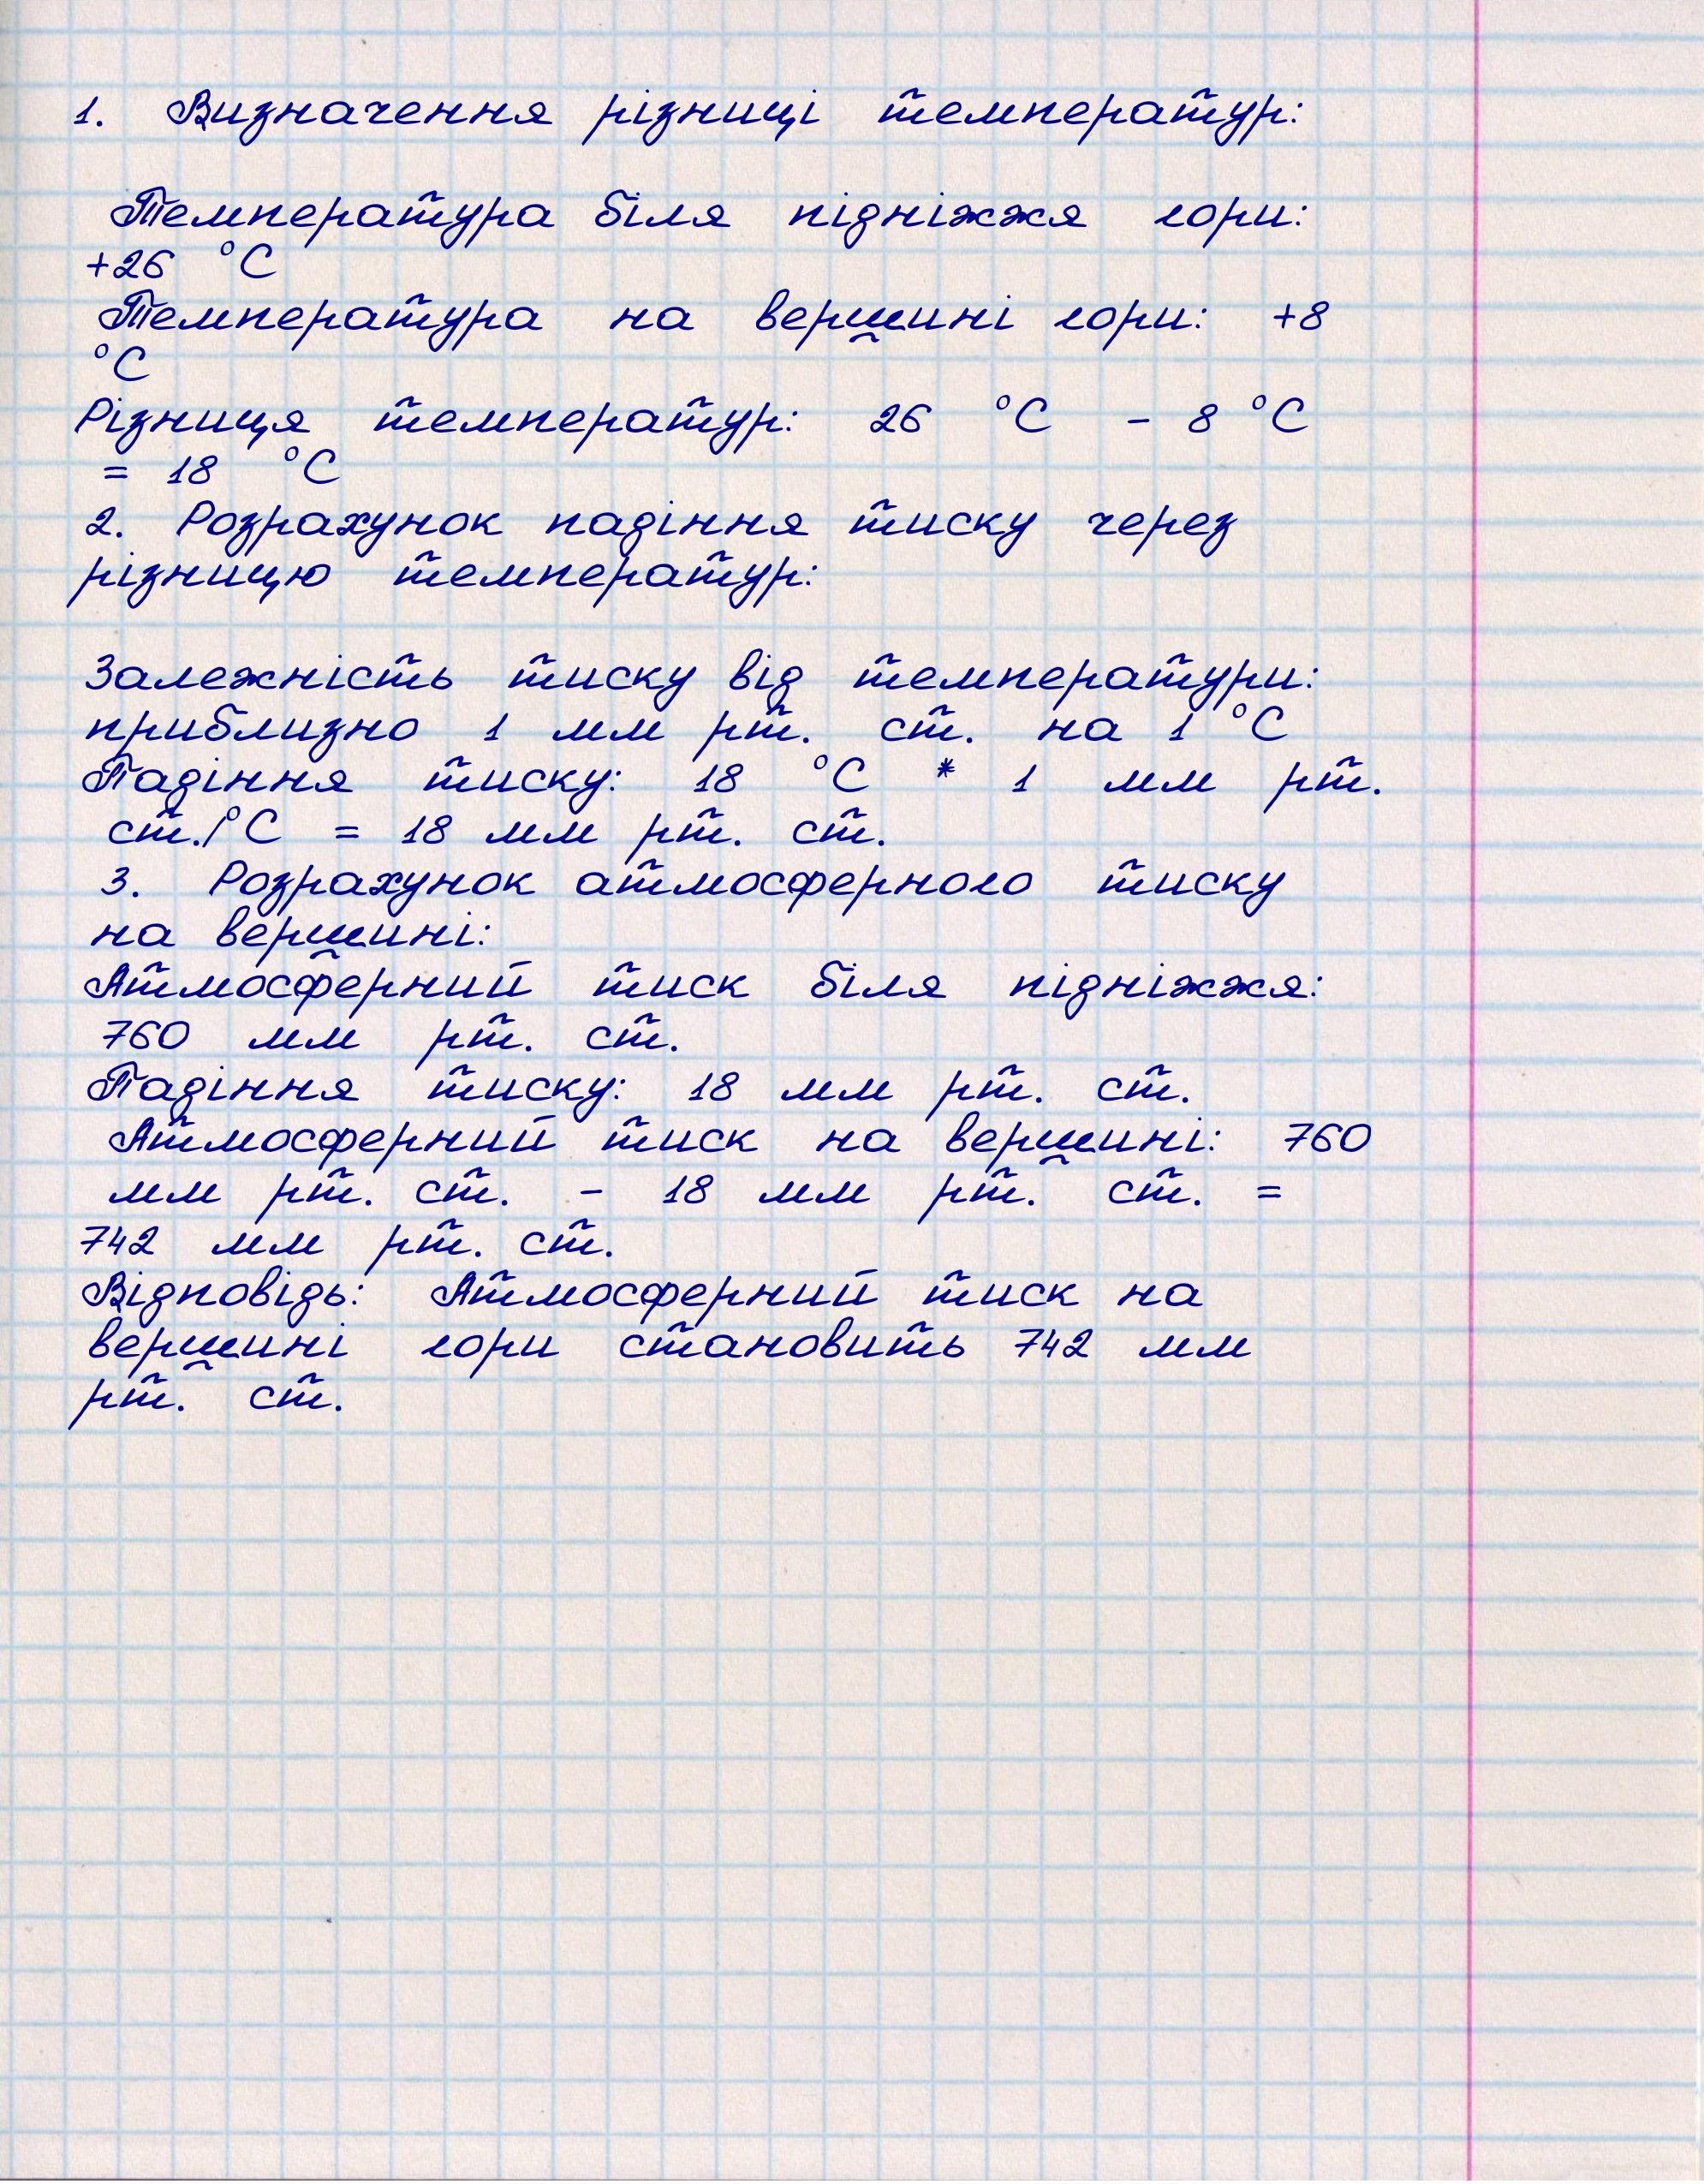 1. Визначення різниці температур:
Температура біля підніжжя гори:
+26 °C
Температура на вершині гори: +8
°C
Різниця температур: 26 °C - 8 °C
= 18 °C
2. Розрахунок падіння тиску через
різницю температур:
Залежність тиску від температури:
приблизно 1 мм рт. ст. на 1 °C
Падіння тиску: 18 °C * 1 мм рт.
ст./°C = 18 мм рт. ст.
3. Розрахунок атмосферного тиску
на вершині:
Атмосферний тиск біля підніжжя:
760 мм рт. ст.
Падіння тиску: 18 мм рт. ст.
Атмосферний тиск на вершині: 760
мм рт. ст. - 18 мм рт. ст. =
742 мм рт. ст.
Відповідь: Атмосферний тиск на
вершині гори становить 742 мм
рт. ст.